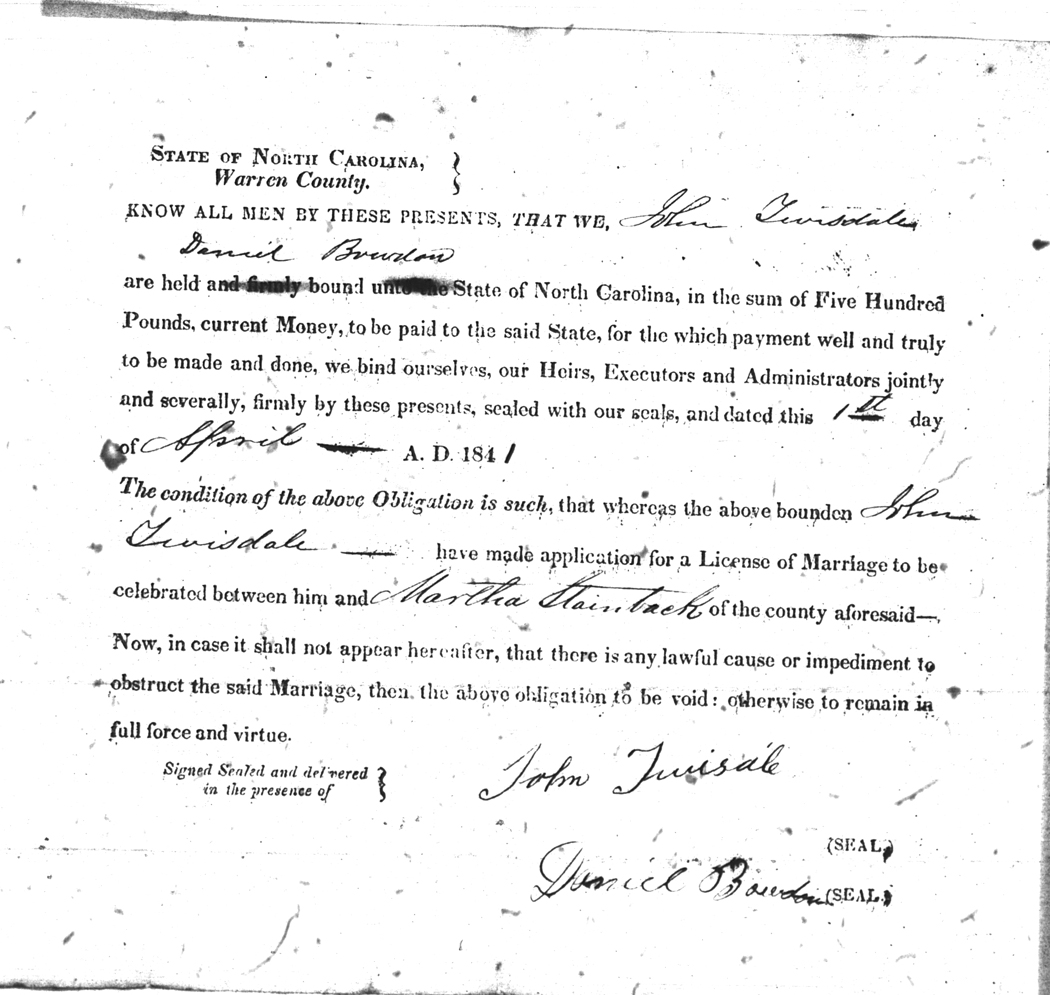 STATE OF NORTH CAROLINA,
Warren County.
KNOW ALL MEN BY THESE PRESENTS, THAT WE, John Twisdale
Daniel Bowdon
are held and firmly bound unto the State of North Carolina, in the sum of Five Hundred
Pounds, current Money, to be paid to the said State, for the which payment well and truly
to be made and done, we bind ourselves, our Heirs, Executors and Administrators jointly
and severally, firmly by these presents, sealed with our seals, and dated this 1st day
of April — A. D. 1841
The condition of the above Obligation is such, that whereas the above bounden John
Twisdale — have made application for a License of Marriage to be
celebrated between him and Martha Stainback of the county aforesaid—.
Now, in case it shall not appear hereafter, that there is any lawful cause or impediment to
obstruct the said Marriage, then the above obligation to be void: otherwise to remain in
full force and virtue.
Signed Sealed and delivered
in the presence of
John Twisdale
(SEAL)
Daniel Bowdon (SEAL)